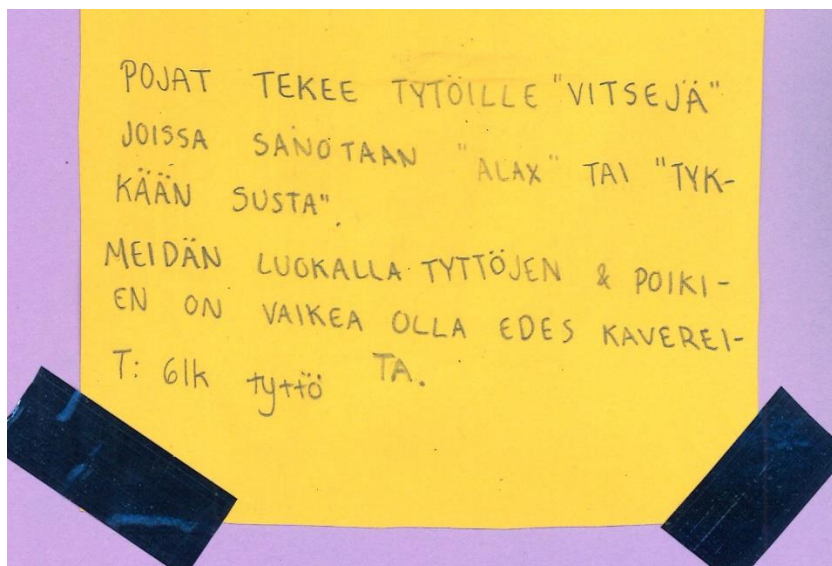 POJAT TEKEE TYTÖILLE "VITSEJÄ"
JOISSA SANOTAAN "ALAX" TAI "TYK-
KÄÄN SUSTA".
MEIDÄN LUOKALLA TYTTÖJEN & POIKI-
EN ON VAIKEA OLLA EDES KAVEREI-
TA.
T: 6lk tyttö